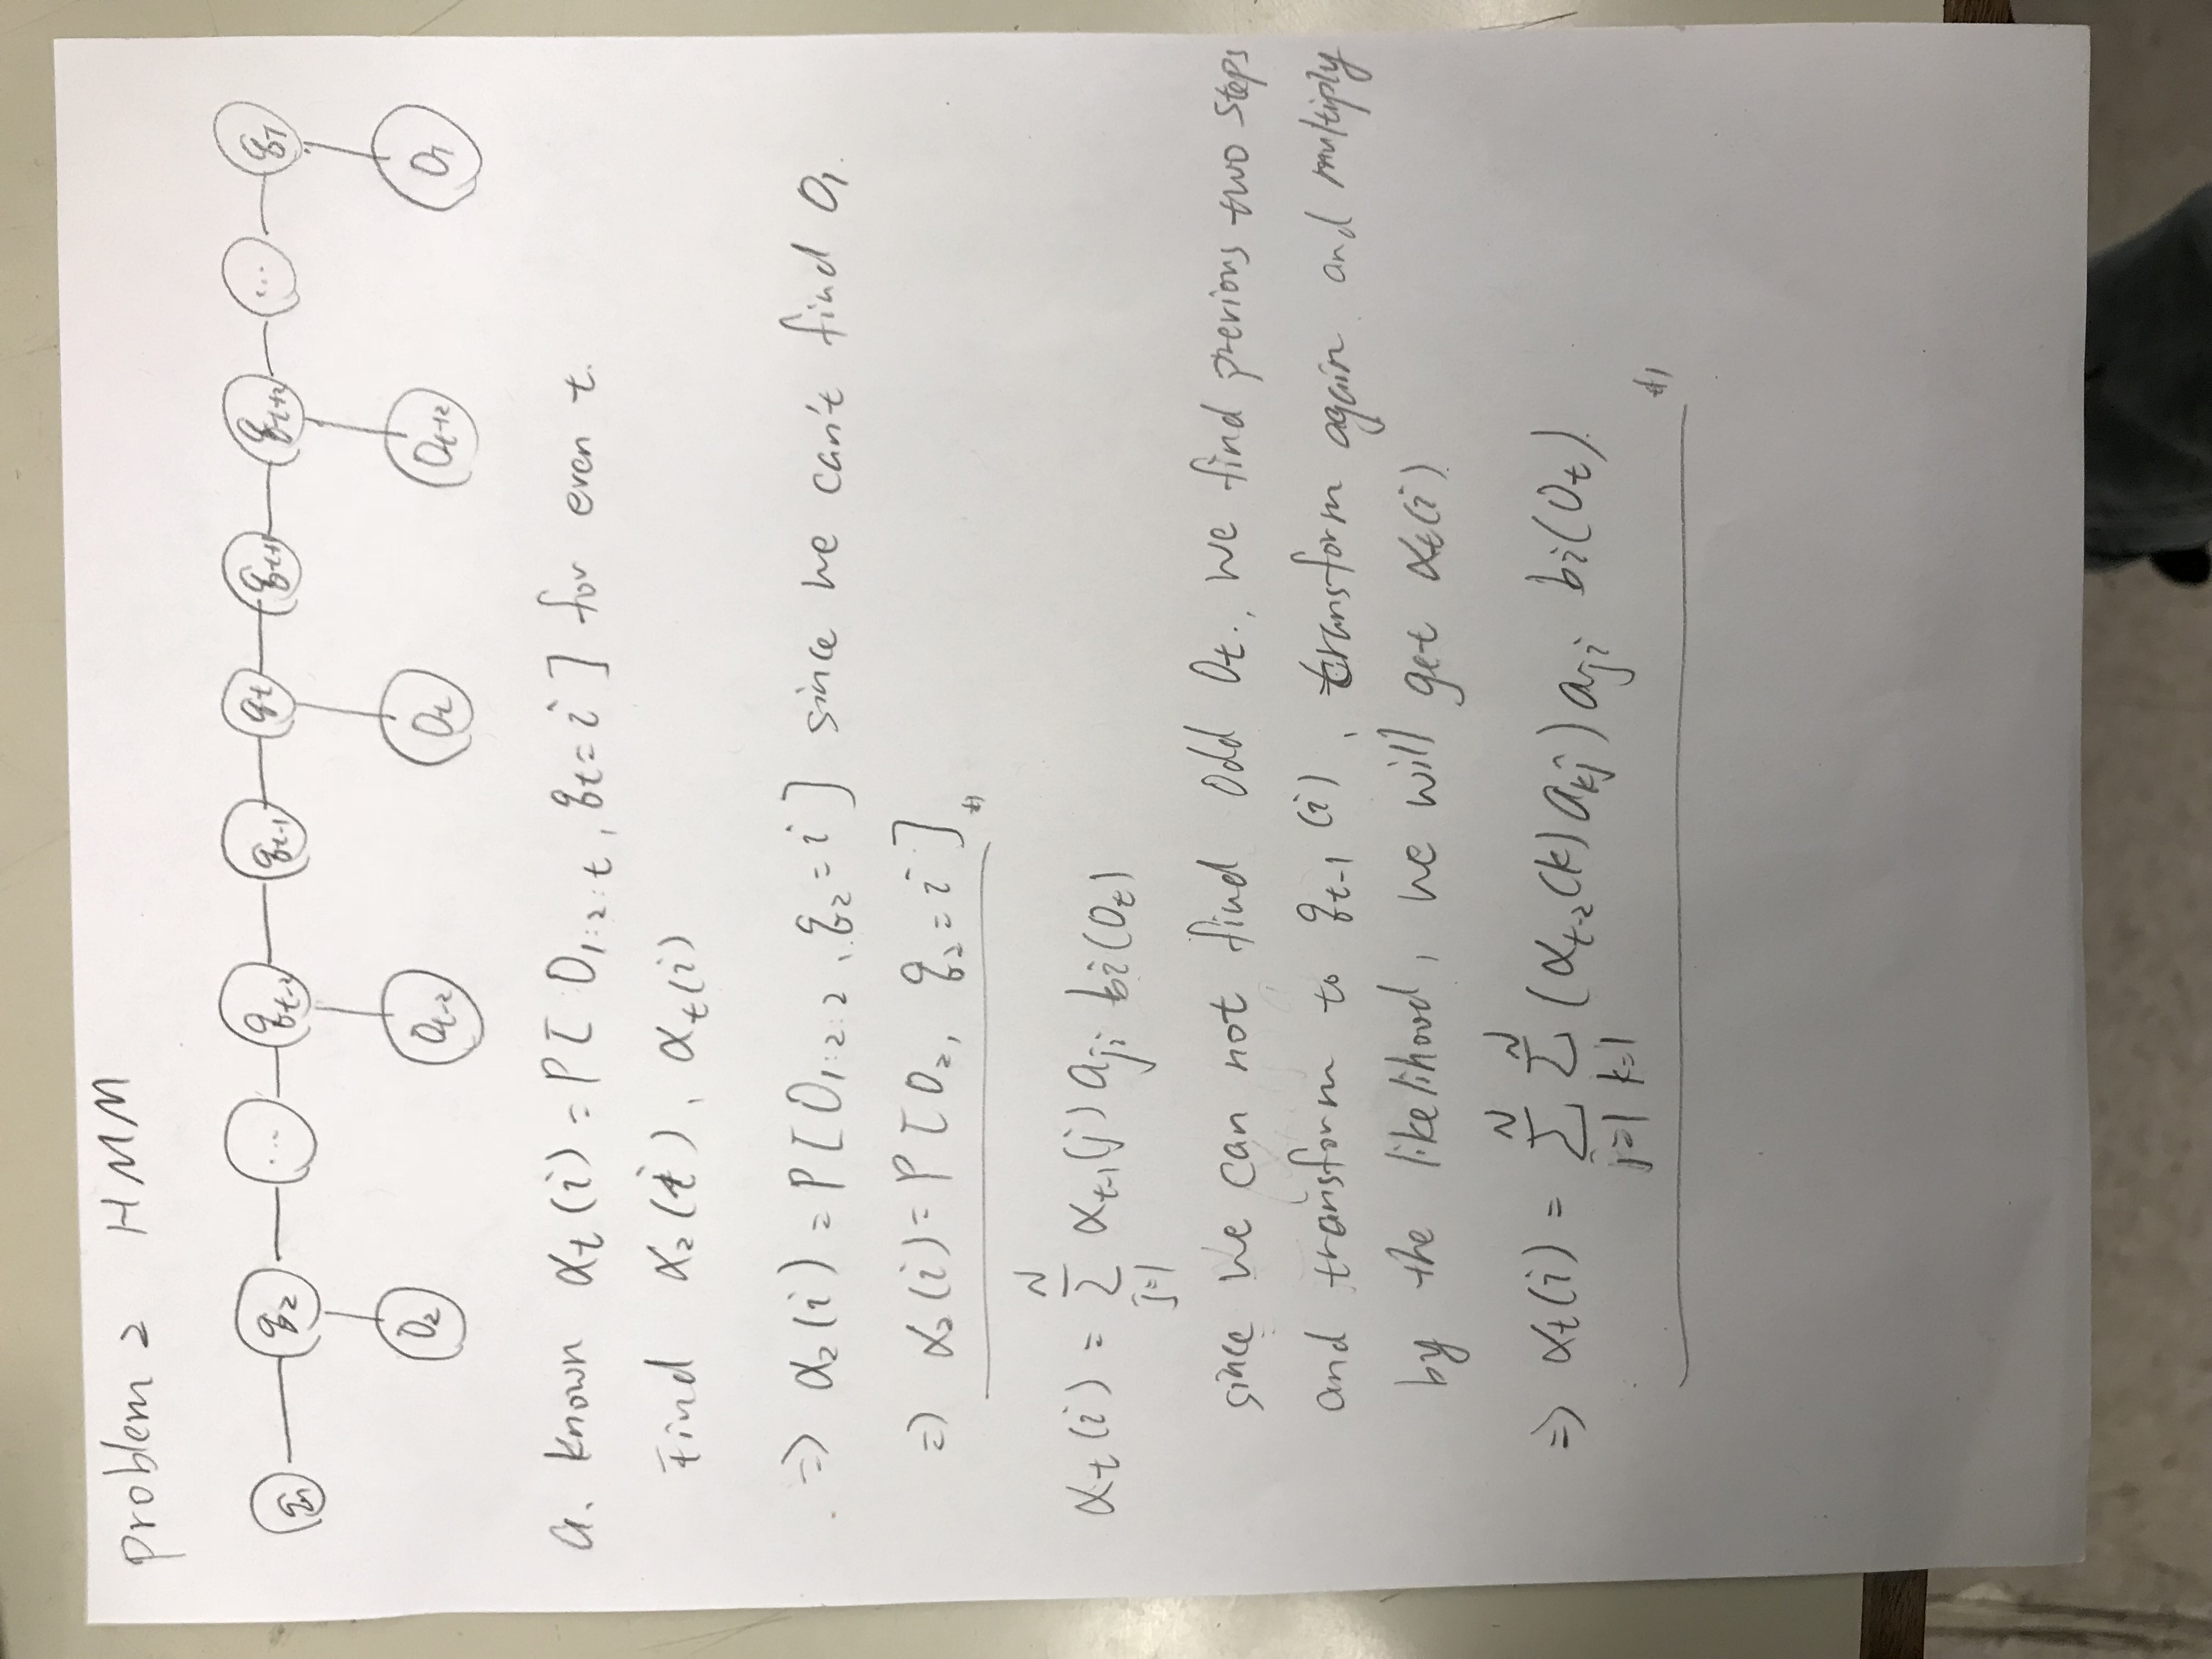 problem 2 HMM
q1 q2 ... qt-2 qt-1 qt qt+1 qt+2 ... qT
O2 Ot-2 Ot Ot+2 OT
a. known αt(i) = P[ O1:2:t, qt=i ] for even t.
Find α2(i), αt(i)
⇒ α2(i) = P[O1:2:2, q2=i] since we can't find O1.
⇒ α2(i) = P[O2, q2=i] #
αt(i) = Σ_{j=1}^{N} αt-1(j) aji bi(Ot)
since we can not find odd Ot., we find previous two steps
and transform to qt-1(i), transform again and multiply
by the likelihood, we will get αt(i)
⇒ αt(i) = Σ_{j=1}^{N} Σ_{k=1}^{N} (αt-2(k) akj) aji bi(Ot). #